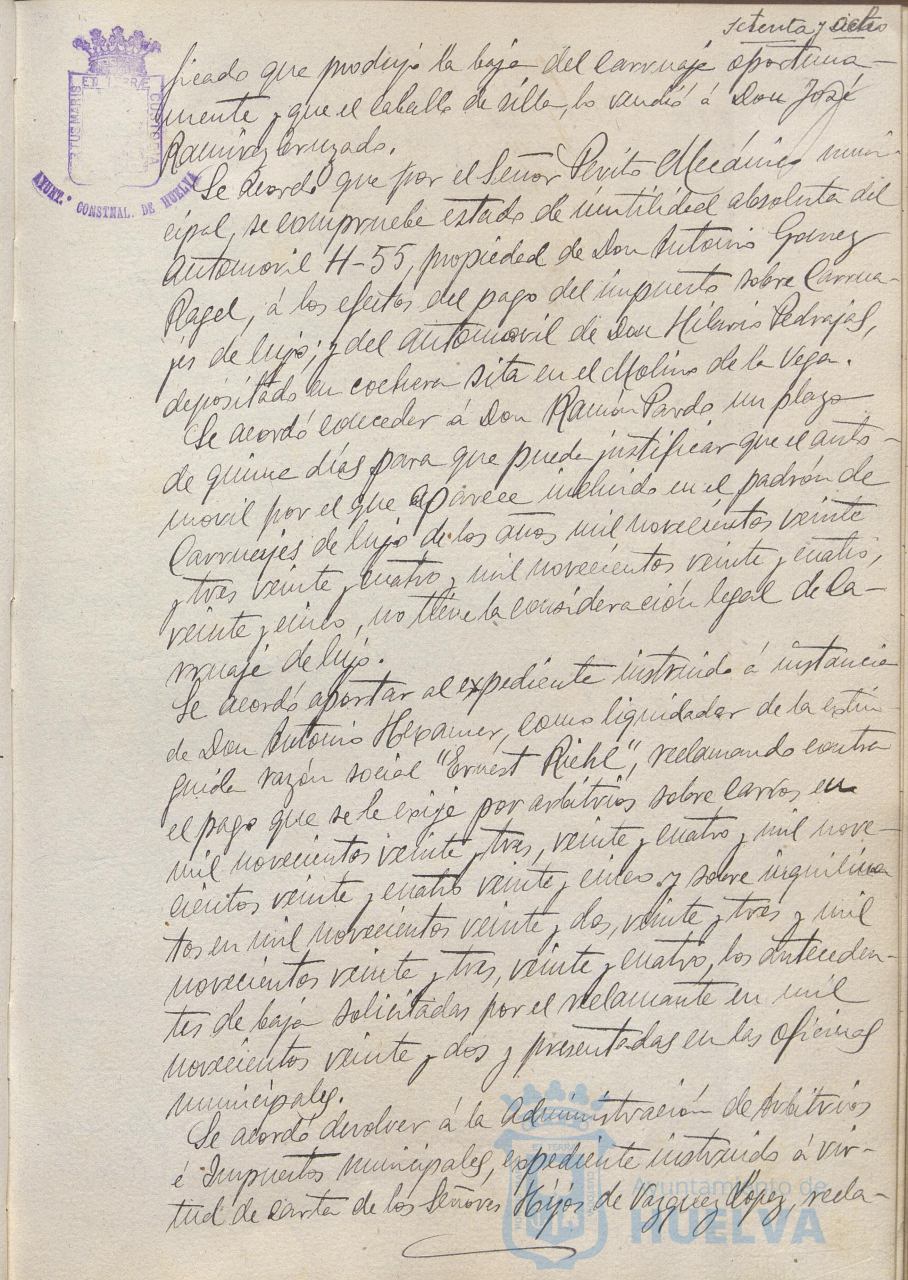 setenta y ocho
EN TERRA
PORTUS MARIS
CUSTODIA
AYUNT. CONSTNAL. DE HUELVA
ficado que produjo la baja del carruaje oportuna-
mente y que el caballo de silla, lo vendió á Don José
Ramirez Cruzado.
Se acordó que por el Señor Perito Mecánico muni-
cipal, se compruebe estado de inutilidad absoluta del
Automovil H-55, propiedad de Don Antonio Gomez
Ragel, á los efectos del pago del impuesto sobre Carrua-
jes de lujo; y del automovil de Don Hilario Pedrajas,
depositado en cochera sita en el Molino de la Vega.
Se acordó conceder á Don Ramón Pardo un plazo
de quince días para que puede justificar que el auto-
movil por el que aparece incluido en el padrón de
Carruajes de lujo de los años mil novecientos veinte
y tres veinte y cuatro y mil novecientos veinte y cuatro,
veinte y cinco, no tiene la consideración legal de ca-
rruaje de lujo.
Se acordó aportar al expediente instruido á instancia
de Don Antonio Hexamer, como liquidador de la extin-
guida razón social "Ernest Riehl", reclamando contra
el pago que se le exije por arbitrios sobre carros en
mil novecientos veinte y tres, veinte y cuatro y mil nove-
cientos veinte y cuatro veinte y cinco y sobre inquilina-
tos en mil novecientos veinte y dos, veinte y tres y mil
novecientos veinte y tres, veinte y cuatro, los anteceden-
tes de baja solicitadas por el reclamante en mil
novecientos veinte y dos y presentadas en las oficinas
municipales.
Se acordó devolver á la Administración de Arbitrios
é Impuestos municipales, expediente instruido á vir-
tud de carta de los Señores Hijos de Vazquez López, recla-
Ayuntamiento de
HUELVA